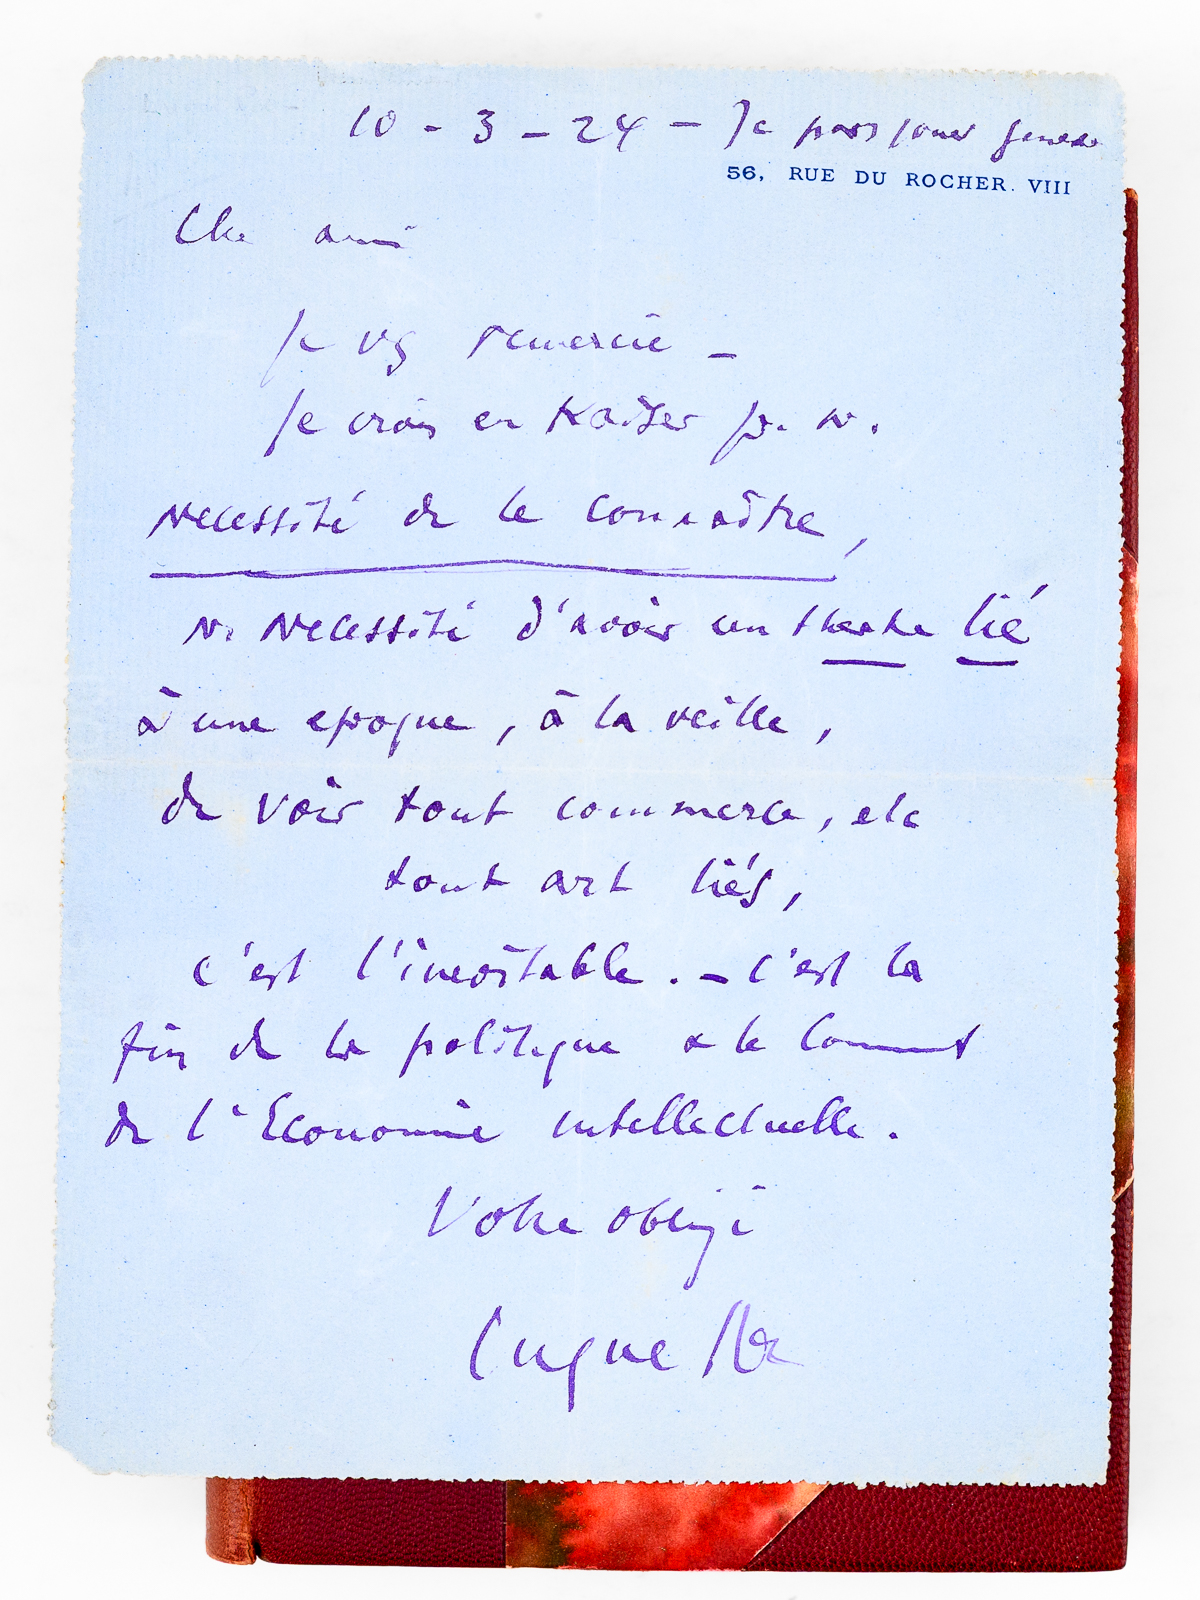 10 - 3 - 24 - Je pars jouer
56, RUE DU ROCHER. VIII
Cher ami
Je vs remercie -
Je crois en Kaiser
Necessité de le connaître,
Necessité d'avoir un theatre lié
à une epoque, à la veille,
de voir tout commerce, etc
tout art liés,
c'est l'inévitable. - C'est la
fin de la politique & le
de l'Economie intellectuelle.
Votre obligé
Lugné Poe